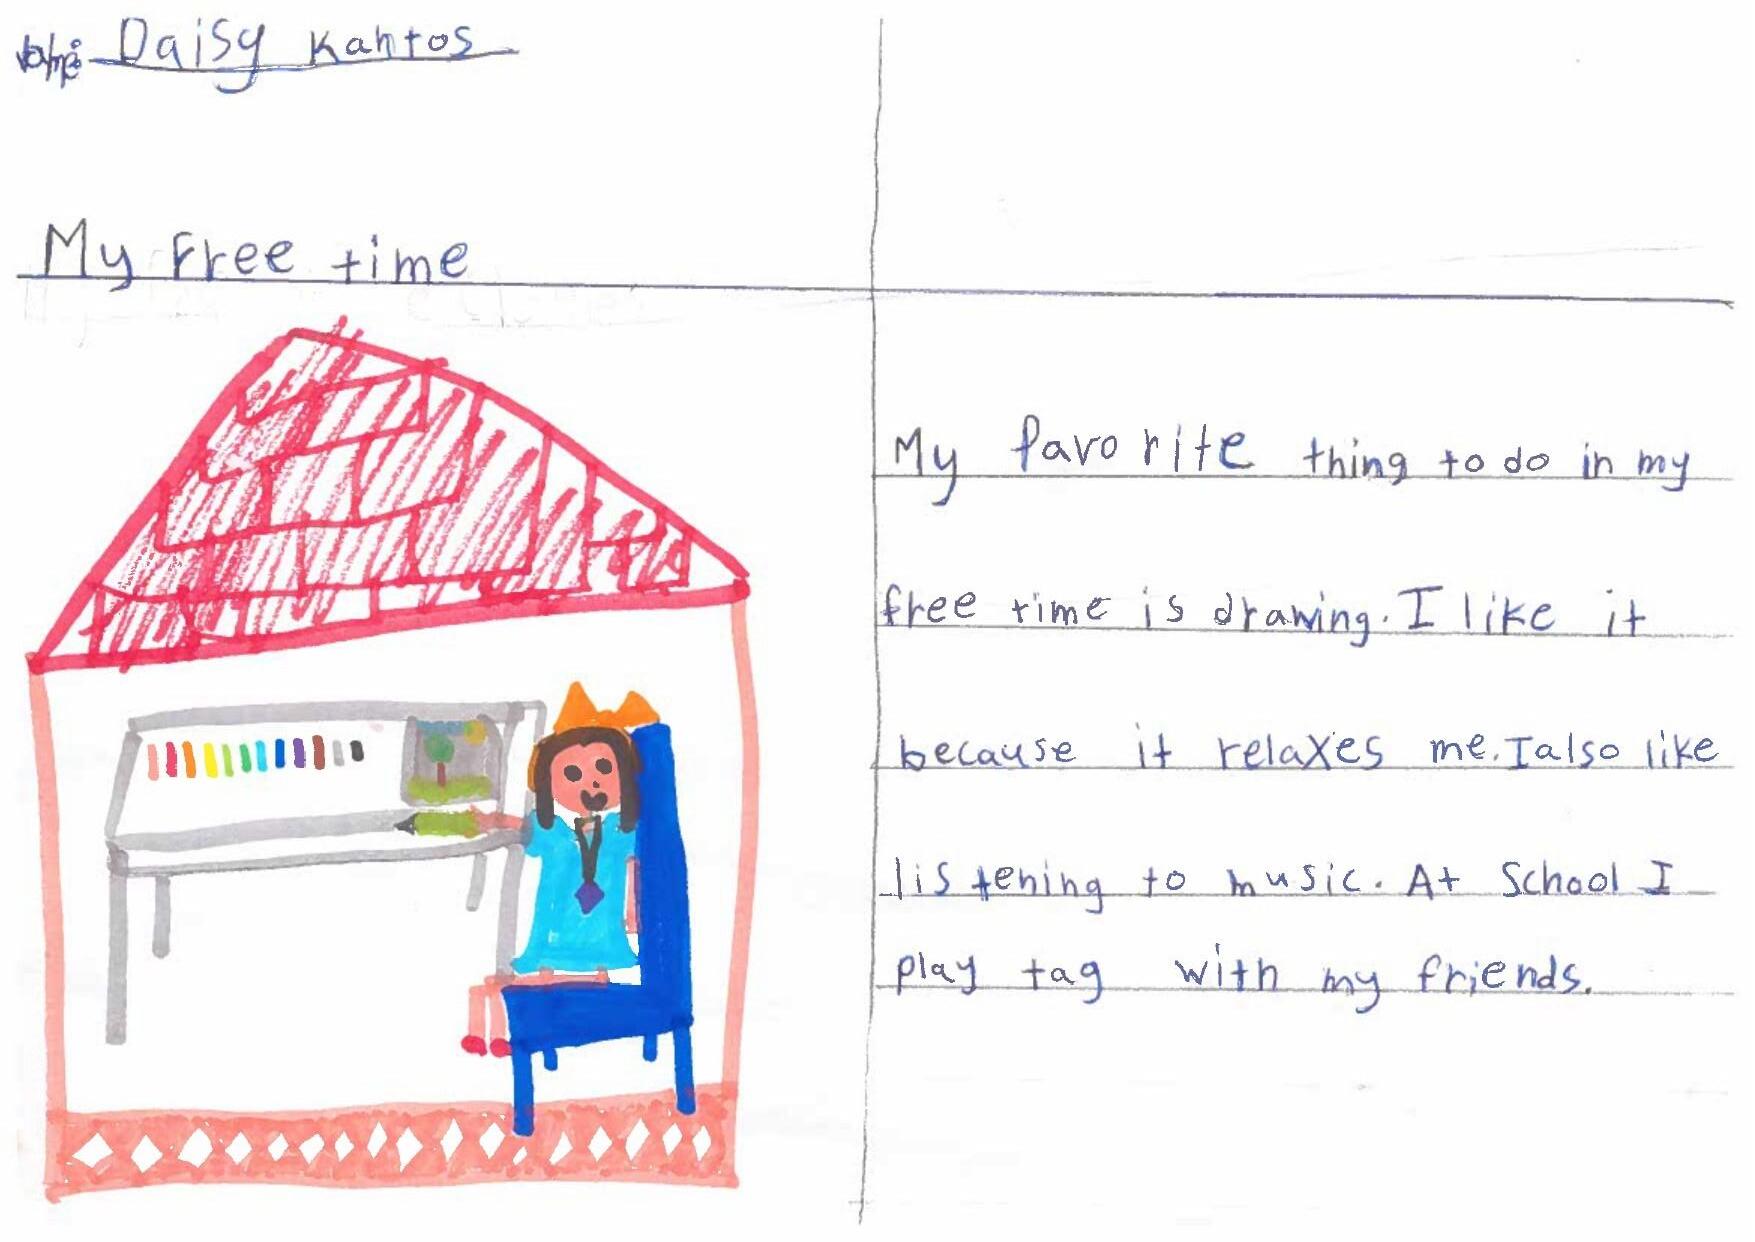 Name: Daisy Kantos
My Free time
My favorite thing to do in my
free time is drawing. I like it
because it relaxes me. I also like
listening to music. At School I
play tag with my friends.